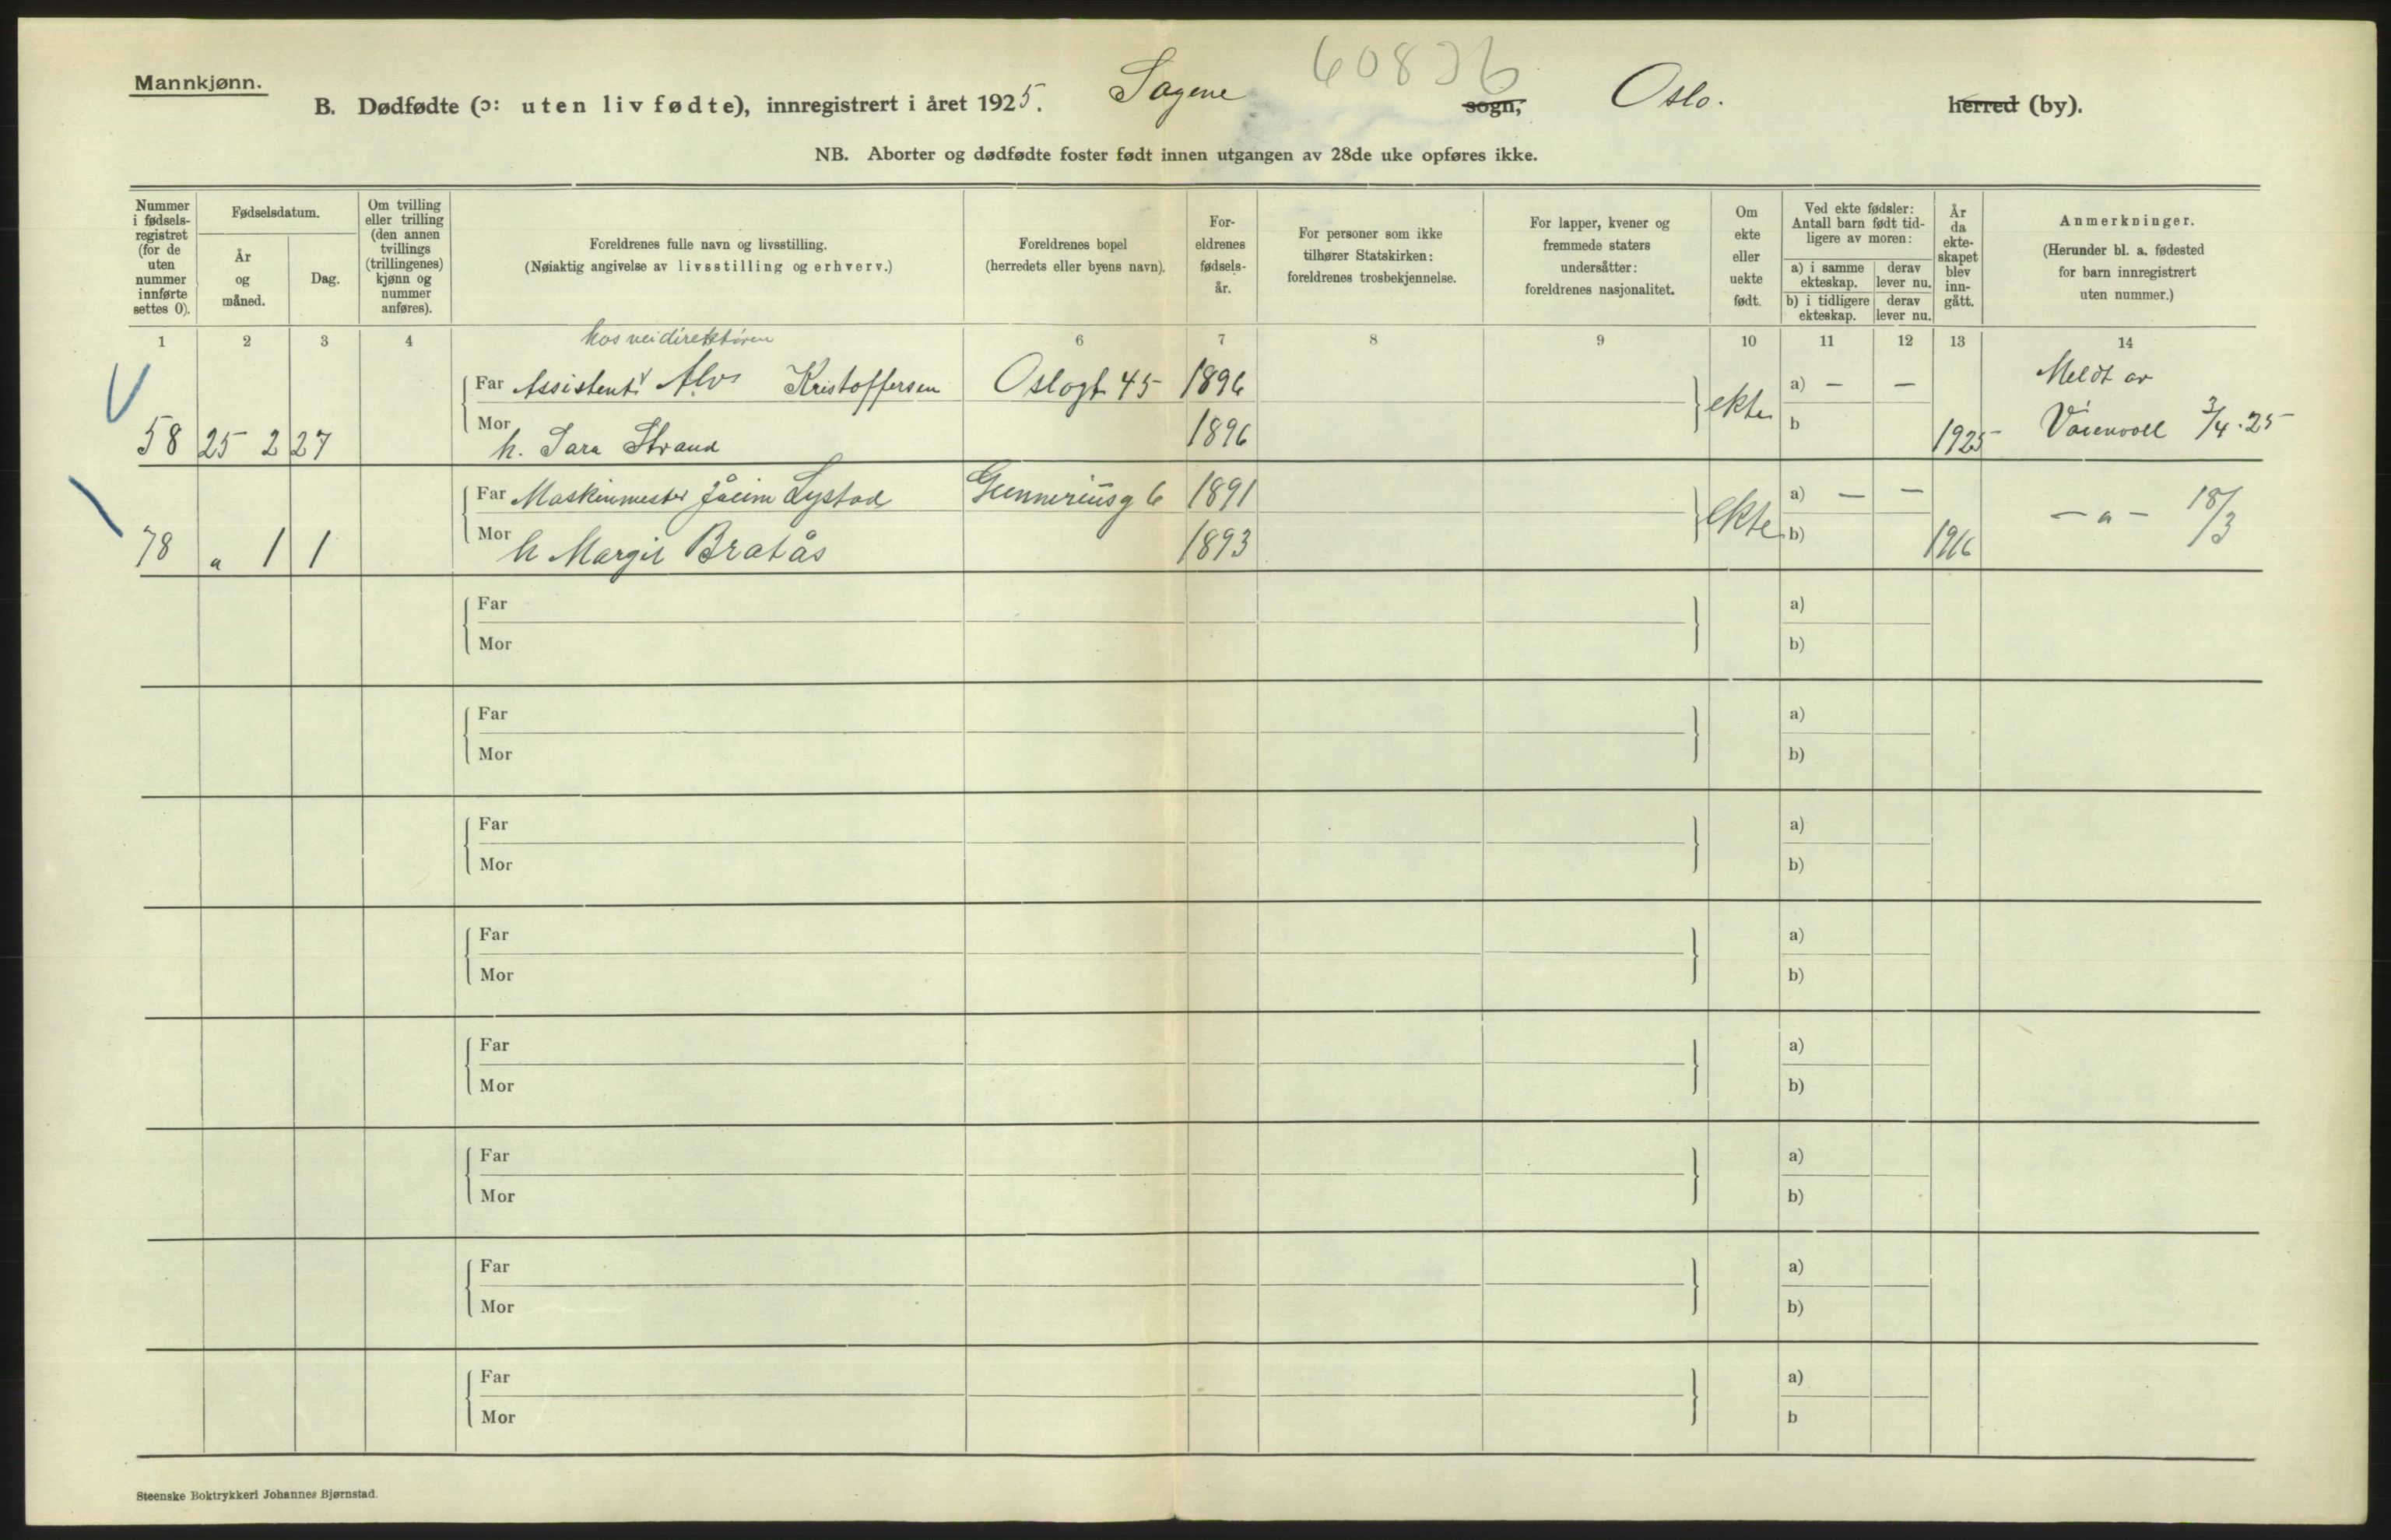 Mannkjønn.
60836
B. Dødfødte (ɔ: uten liv fødte), innregistrert i året 1925. Sagene sogn, Oslo. herred (by).
NB. Aborter og dødfødte foster født innen utgangen av 28de uke opføres ikke.
Nummer i fødsels- registret (for de uten nummer innførte settes 0).
Fødselsdatum.
År og måned.
Dag.
Om tvilling eller trilling (den annen tvillings (trillingenes) kjønn og nummer anføres).
Foreldrenes fulle navn og livsstilling.
(Nøiaktig angivelse av livsstilling og erhverv.)
Foreldrenes bopel
(herredets eller byens navn).
For- eldrenes fødsels- år.
For personer som ikke
tilhører Statskirken:
foreldrenes trosbekjennelse.
For lapper, kvener og
fremmede staters
undersåtter:
foreldrenes nasjonalitet.
Om ekte eller uekte født.
Ved ekte fødsler:
Antall barn født tid-
ligere av moren:
a) i samme ekteskap.
derav lever nu.
b) i tidligere ekteskap.
derav lever nu.
År da ekte- skapet blev inn- gått.
Anmerkninger.
(Herunder bl. a. fødested
for barn innregistrert
uten nummer.)
1 2 3 4 6 7 8 9 10 11 12 13 14
hos veidirektøren
Far Assistent Alv Kristoffersen Oslogt 45 1896 a) — — Meldt av
58 25 2 27 Mor h. Sara Strand 1896 ekte b 1925 3/4.25
Far Maskinmester Lystad Gunneriusg 6 1891 a) — — — " — 18/3
78 " 1 1 Mor h Margit Bratås 1893 ekte b) 1916
Far a)
Mor b)
Far a)
Mor b)
Far a)
Mor b)
Far a)
Mor b)
Far a)
Mor b)
Far a)
Mor b)
Far a)
Mor b)
Far a)
Mor b
Steenske Boktrykkeri Johannes Bjørnstad.